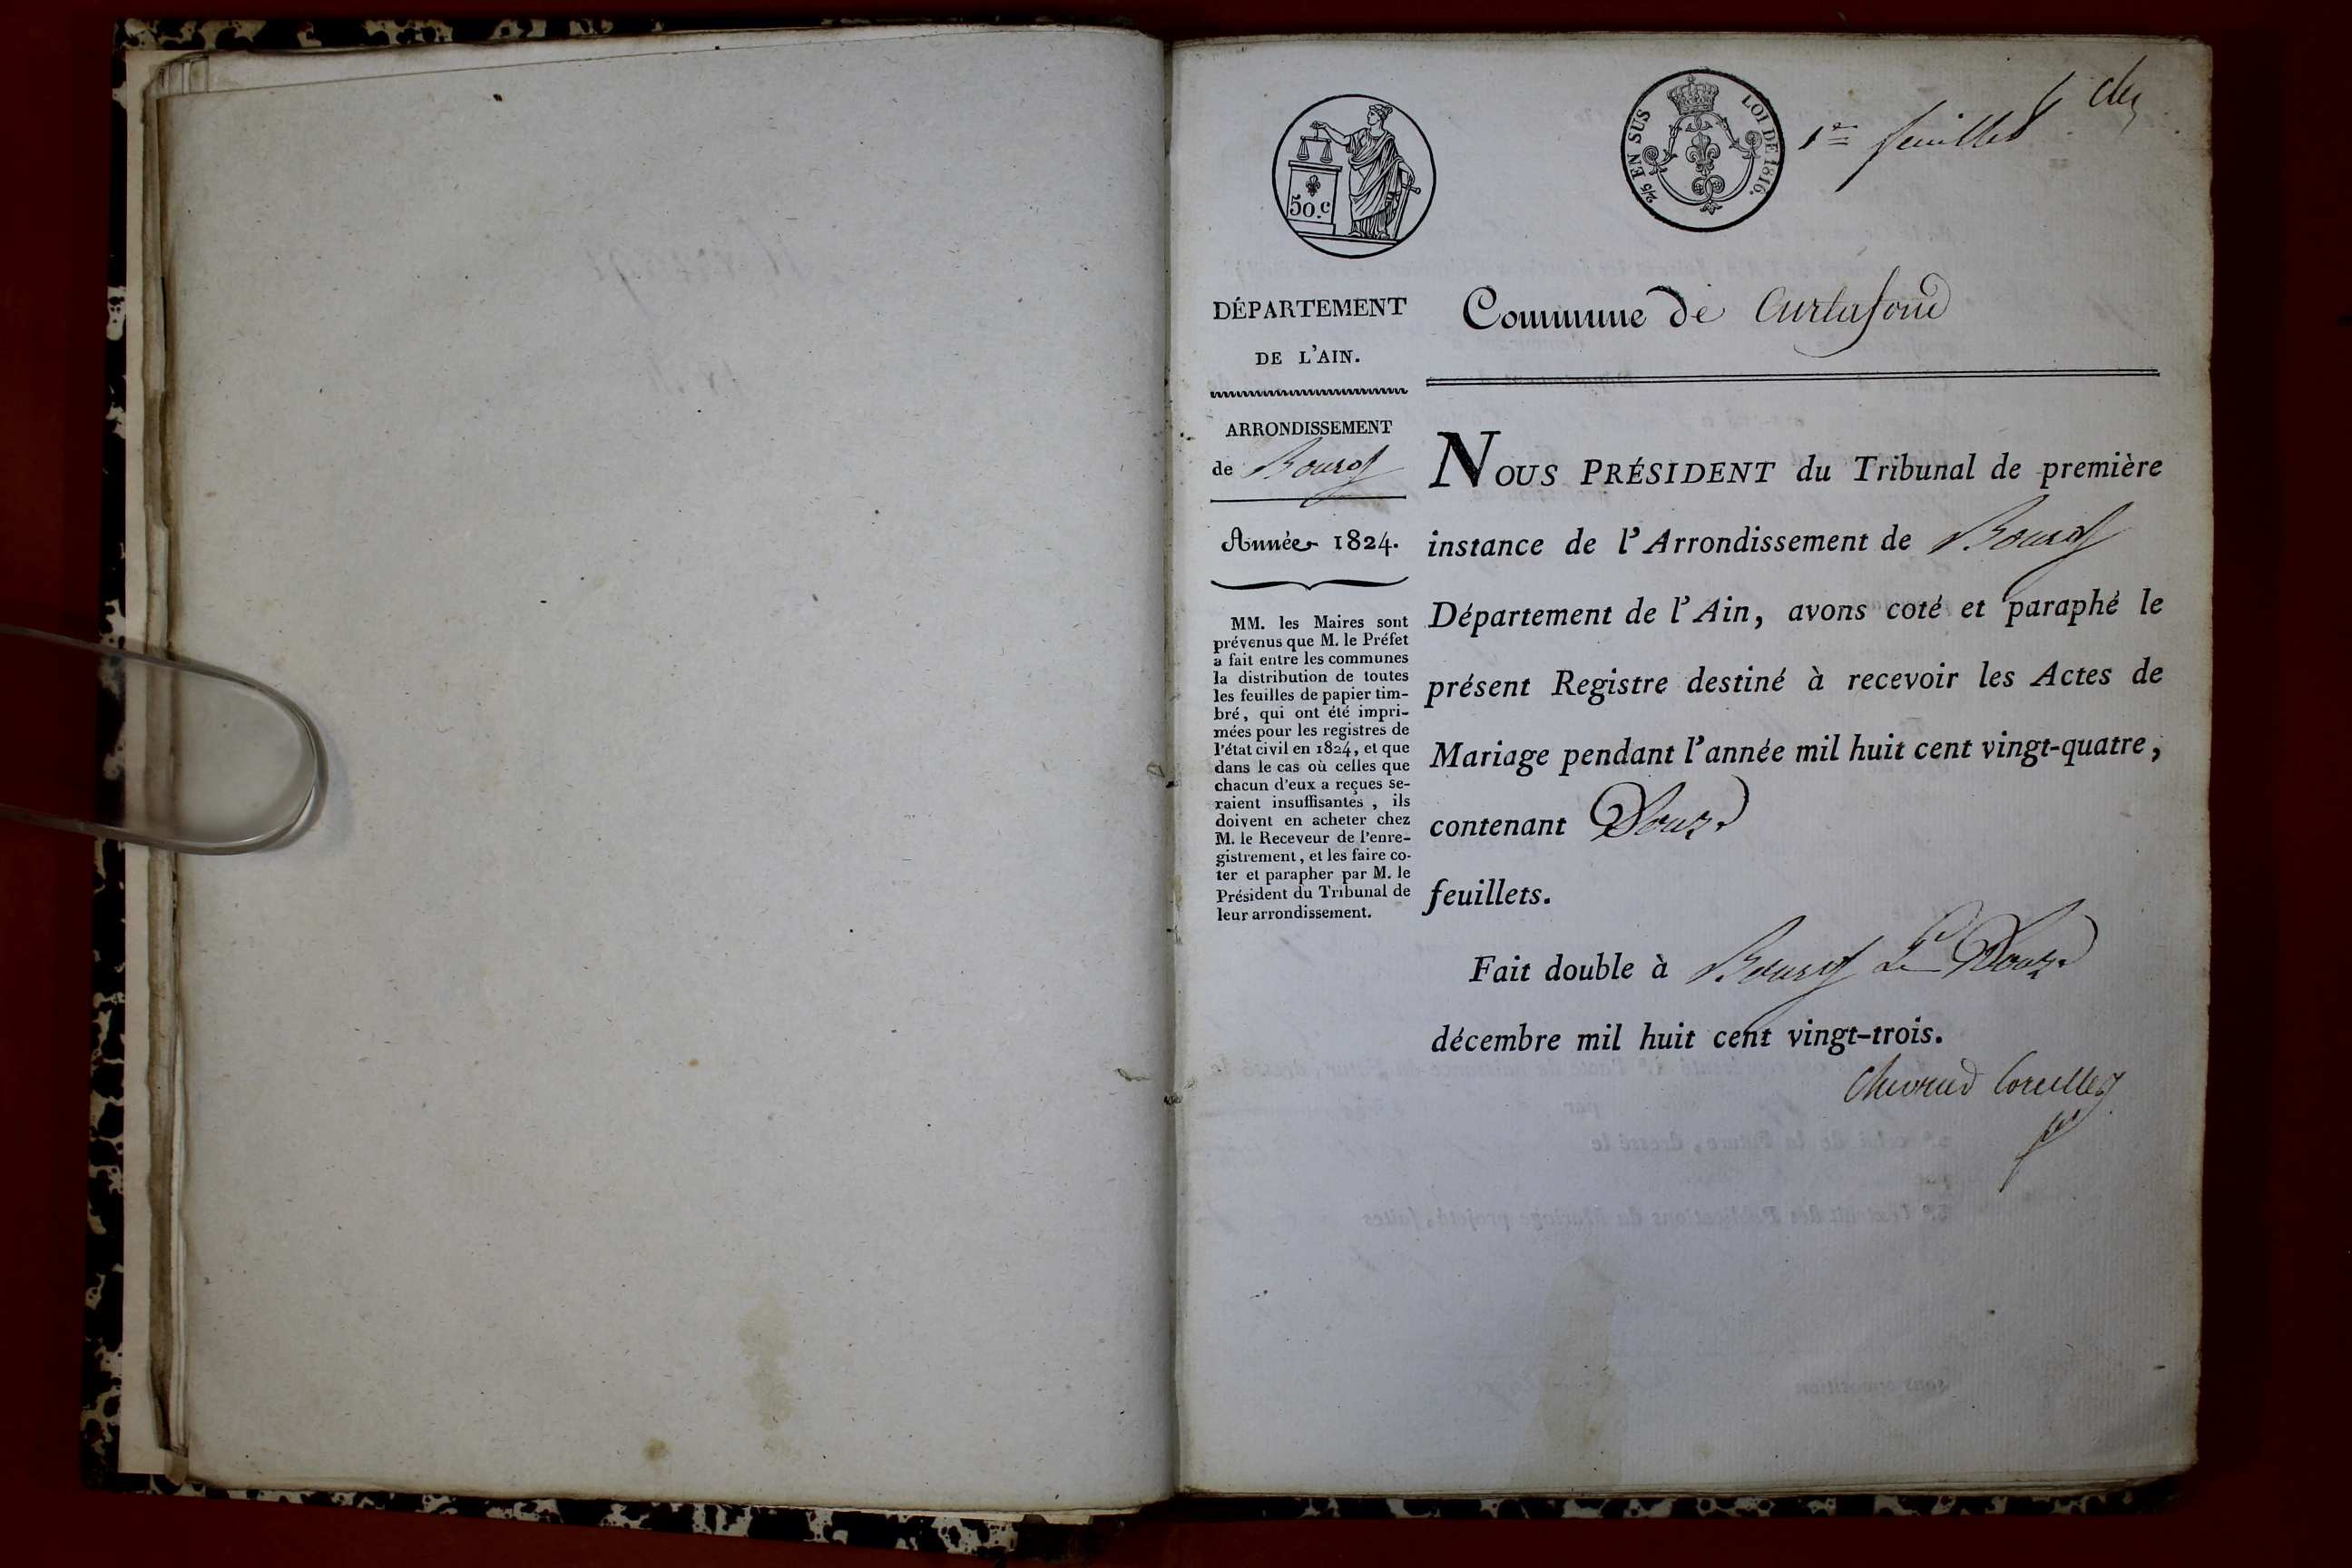 50.c
2/5 EN SUS
LOI DE 1816.
1er feuillet
DÉPARTEMENT
DE L'AIN.
ARRONDISSEMENT
de Bourg
Année 1824.
MM. les Maires sont
prévenus que M. le Préfet
a fait entre les communes
la distribution de toutes
les feuilles de papier tim-
bré, qui ont été impri-
mées pour les registres de
l'état civil en 1824, et que
dans le cas où celles que
chacun d'eux a reçues se-
raient insuffisantes, ils
doivent en acheter chez
M. le Receveur de l'enre-
gistrement, et les faire co-
ter et parapher par M. le
Président du Tribunal de
leur arrondissement.
Commune de Curtafond
NOUS PRÉSIDENT du Tribunal de première
instance de l'Arrondissement de Bourg
Département de l'Ain, avons coté et paraphé le
présent Registre destiné à recevoir les Actes de
Mariage pendant l'année mil huit cent vingt-quatre,
contenant Douze
feuillets.
Fait double à Bourg Le Douze
décembre mil huit cent vingt-trois.